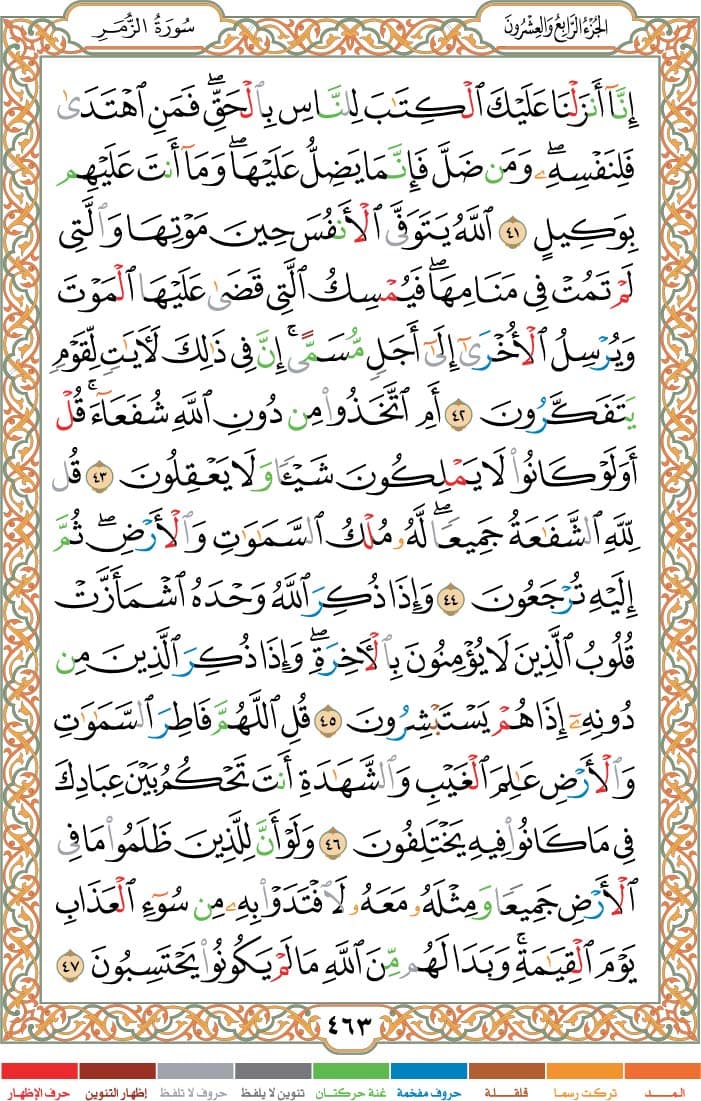 الجُزْءُ الرَّابِعُ وَالعِشْرُونَ
سُورَةُ الزُّمَر
إِنَّآ أَنزَلْنَا عَلَيْكَ ٱلْكِتَٰبَ لِلنَّاسِ بِٱلْحَقِّ ۖ فَمَنِ ٱهْتَدَىٰ
فَلِنَفْسِهِۦ ۖ وَمَن ضَلَّ فَإِنَّمَا يَضِلُّ عَلَيْهَا ۖ وَمَآ أَنتَ عَلَيْهِم
بِوَكِيلٍ ٤١ ٱللَّهُ يَتَوَفَّى ٱلْأَنفُسَ حِينَ مَوْتِهَا وَٱلَّتِى
لَمْ تَمُتْ فِى مَنَامِهَا ۖ فَيُمْسِكُ ٱلَّتِى قَضَىٰ عَلَيْهَا ٱلْمَوْتَ
وَيُرْسِلُ ٱلْأُخْرَىٰٓ إِلَىٰٓ أَجَلٍ مُّسَمًّى ۚ إِنَّ فِى ذَٰلِكَ لَءَايَٰتٍ لِّقَوْمٍ
يَتَفَكَّرُونَ ٤٢ أَمِ ٱتَّخَذُوا۟ مِن دُونِ ٱللَّهِ شُفَعَآءَ ۚ قُلْ
أَوَلَوْ كَانُوا۟ لَا يَمْلِكُونَ شَيْـًٔا وَلَا يَعْقِلُونَ ٤٣ قُل
لِّلَّهِ ٱلشَّفَٰعَةُ جَمِيعًا ۖ لَّهُۥ مُلْكُ ٱلسَّمَٰوَٰتِ وَٱلْأَرْضِ ۖ ثُمَّ
إِلَيْهِ تُرْجَعُونَ ٤٤ وَإِذَا ذُكِرَ ٱللَّهُ وَحْدَهُ ٱشْمَأَزَّتْ
قُلُوبُ ٱلَّذِينَ لَا يُؤْمِنُونَ بِٱلْءَاخِرَةِ ۖ وَإِذَا ذُكِرَ ٱلَّذِينَ مِن
دُونِهِۦٓ إِذَا هُمْ يَسْتَبْشِرُونَ ٤٥ قُلِ ٱللَّهُمَّ فَاطِرَ ٱلسَّمَٰوَٰتِ
وَٱلْأَرْضِ عَٰلِمَ ٱلْغَيْبِ وَٱلشَّهَٰدَةِ أَنتَ تَحْكُمُ بَيْنَ عِبَادِكَ
فِى مَا كَانُوا۟ فِيهِ يَخْتَلِفُونَ ٤٦ وَلَوْ أَنَّ لِلَّذِينَ ظَلَمُوا۟ مَا فِى
ٱلْأَرْضِ جَمِيعًا وَمِثْلَهُۥ مَعَهُۥ لَٱفْتَدَوْا۟ بِهِۦ مِن سُوٓءِ ٱلْعَذَابِ
يَوْمَ ٱلْقِيَٰمَةِ ۚ وَبَدَا لَهُم مِّنَ ٱللَّهِ مَا لَمْ يَكُونُوا۟ يَحْتَسِبُونَ ٤٧
٤٦٣
المـد تركت رسما قلقـلة حروف مفخمة غنة حركتان تنوين لا يلفظ حروف لا تلفظ إظهار التنوين حرف الإظهار